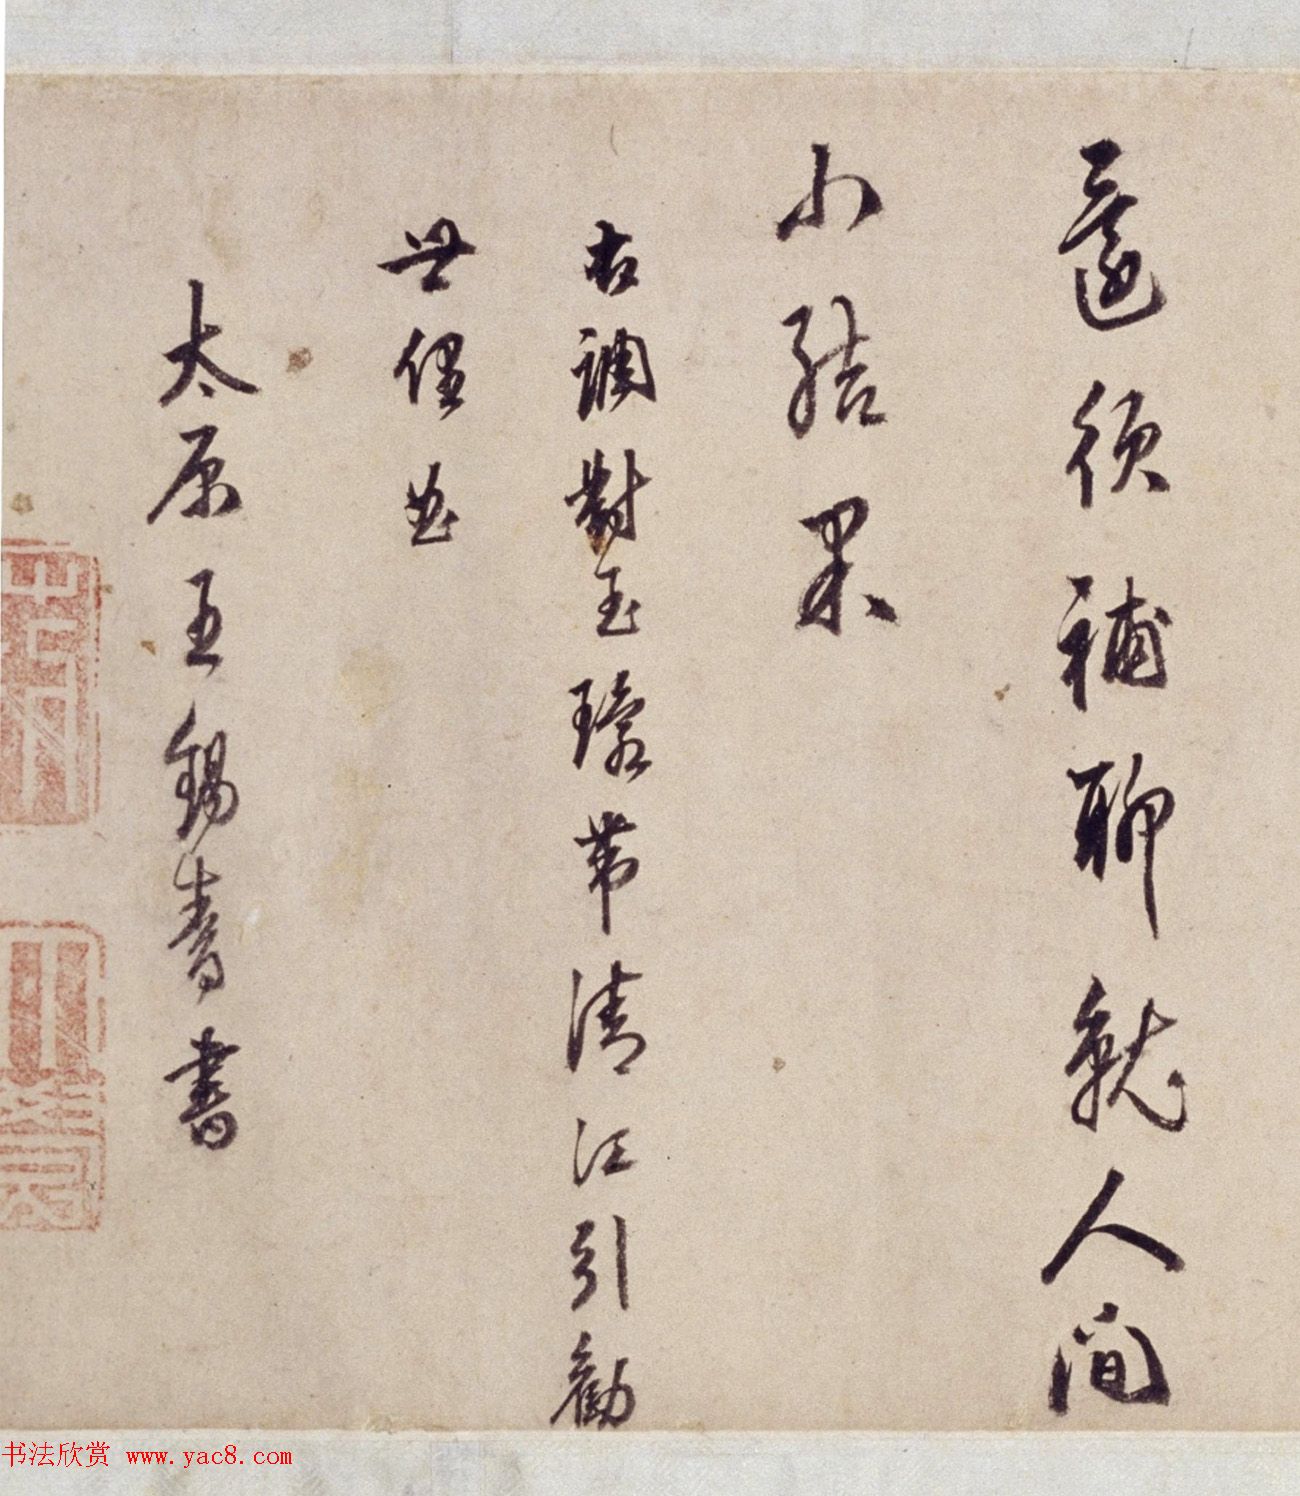 還須補聊就人間
小結果
右調對玉環帶清江引勸
世俚曲
太原王錫爵書
书法欣赏 www.yac8.com